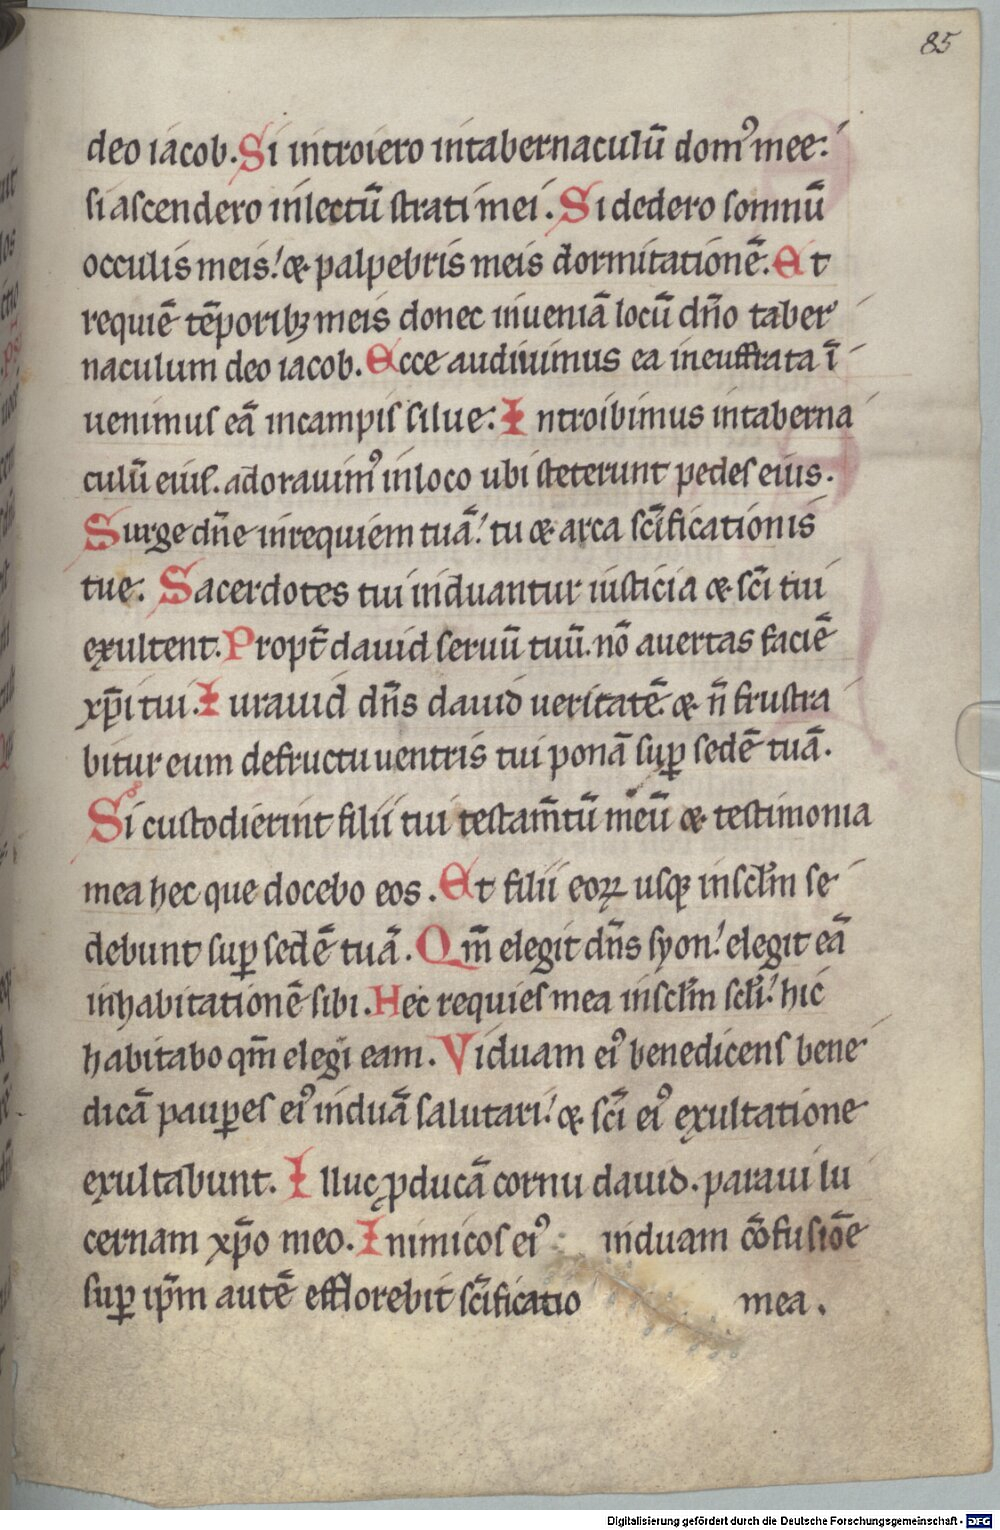 85
deo iacob. Si introiero intabernaculū domꝰ mee:
si ascendero inlectū strati mei. Si dedero somnū
occulis meis! & palpebris meis dormitationē. Et
requiē tēporibꝫ meis donec inveniā locū dn̄o taber
naculum deo iacob. Ecce audivimus ea ineuffrata ī
uenimus eā incampis silue: Introibimus intaberna
culū eius. adorauimꝰ inloco ubi steterunt pedes eius.
Surge dn̄e inrequiem tuā! tu & arca sc̄ificationis
tue. Sacerdotes tui induantur iusticia & sc̄i tui
exultent. Propt̄ dauid seruū tuū. nō avertas faciē
xp̄i tui. Iurauid dn̄s dauid ueritatē & n̄ frustra
bitur eum defructu uentris tui ponā suꝑ sedē tuā.
Si custodierint filii tui testam̄tū meū & testimonia
mea hec que docebo eos. Et filii eoꝝ usqꝫ insclm̄ se
debunt suꝑ sedē tuā. Qm̄ elegit dn̄s syon! elegit eā
inhabitationē sibi. Hec requies mea insclm̄ scli̅! hic
habitabo qm̄ elegi eam. Viduam eiꝰ benedicens bene
dicā pauꝑes eiꝰ induā salutari! & sc̄i eiꝰ exultatione
exultabunt. Illuc ꝓducā cornu dauid. paraui lu
cernam xp̄o meo. Inimicos eiꝰ induam cōfusiōe
suꝑ ip̄m autē efflorebit sc̄ificatio mea.
Digitalisierung gefördert durch die Deutsche Forschungsgemeinschaft - DFG